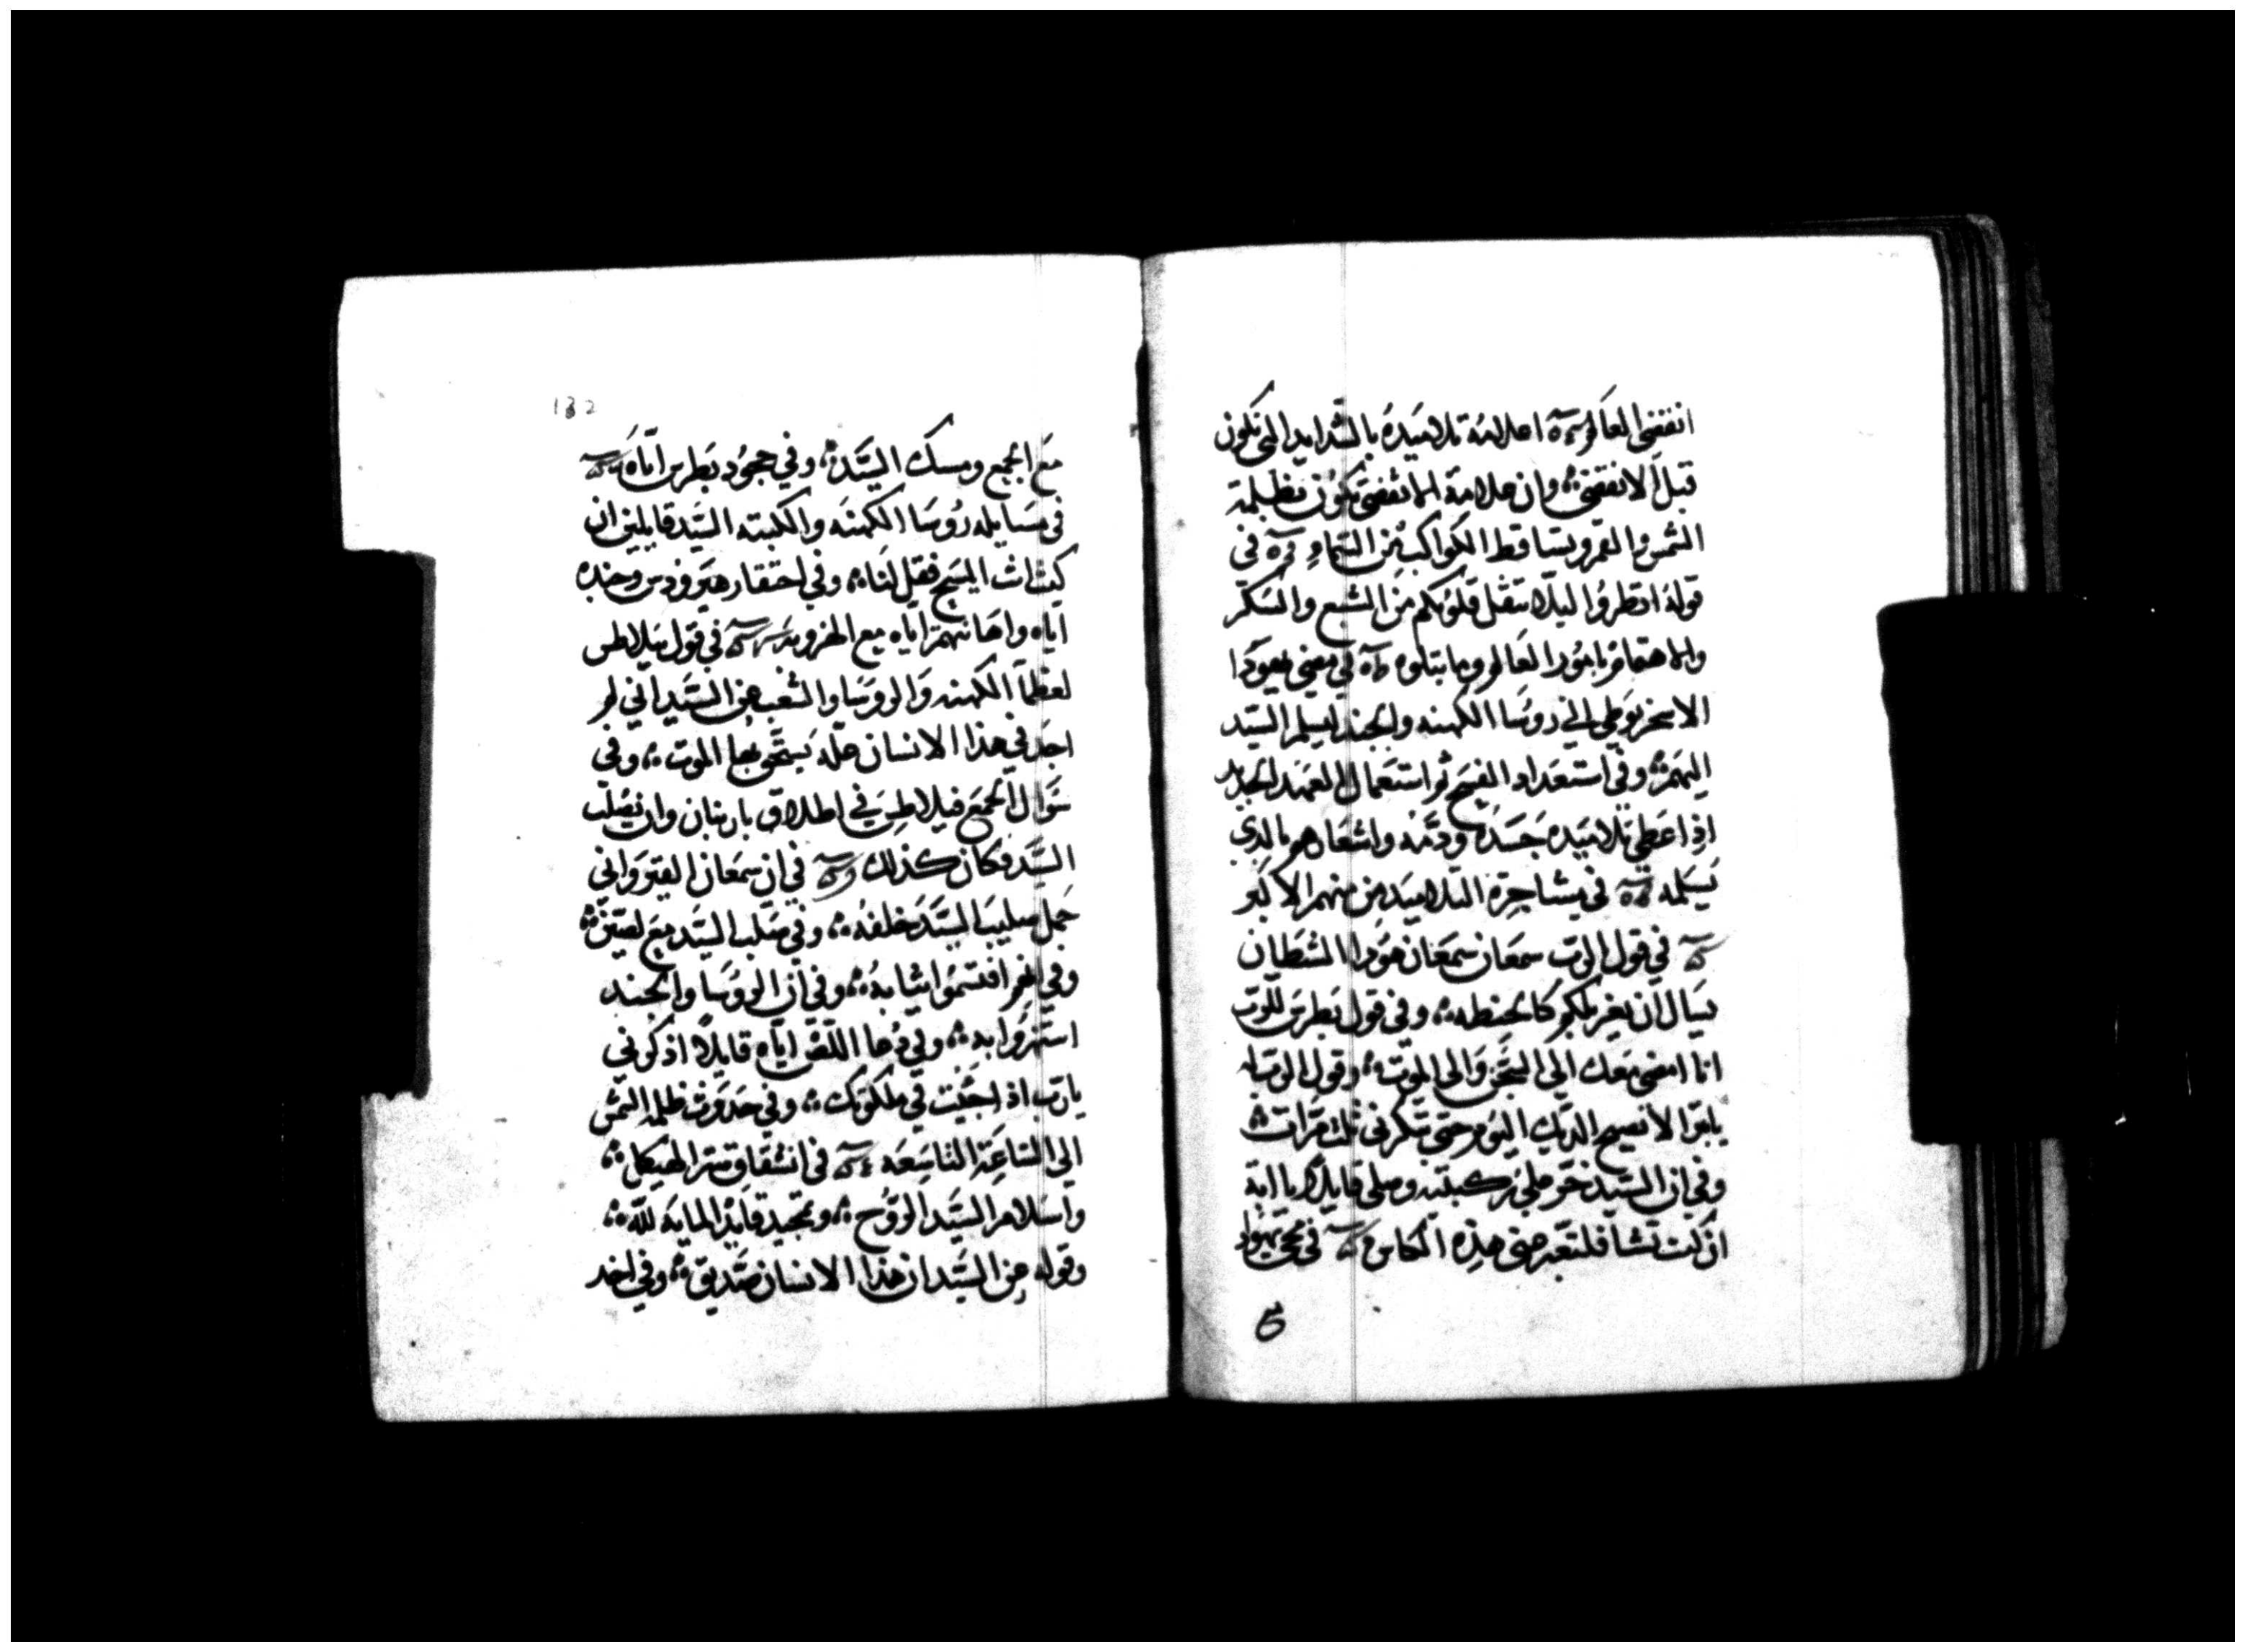 انقضي العالم اعلامه تلاميده بالشدايد التي تكون
قبل الانقضي وان علامة الانقضي تكون بظلمة
الشمس والقمر ويتساقط الكواكب من السماء في
قوله انظروا ليلا تثقل قلوبكم من الشبع والسكر
والاهتمام بامور العالم وما يتلوه في مضي يهودا
الاسخريوطي الي روسا الكهنه والجند ليسلم السيد
اليهم وفي استعداد الفسح ثم استعمال العهد الجديد
اذ اعطي تلاميده جسده ودمه واشعارهم بالذي
يسلمه في مشاجرة التلاميد من منهم الاكبر
في قول الرب سمعان سمعان هودا الشطان
يسال ان يغربلكم كالحنطه وفي قول بطرس للرب
انا امضي معك الي السجن والي الموت وقول الرب له
لا يصيح الديك اليوم حتي تنكرني ثلت مرات
وفي ان السيد خر علي ركبتيه وصلي قايلا يا ابة
ان كنت تشا فلتعبر عني هذه الكاس في مجي يهودا
132
مع الجمع ومسك السيد وفي جحود بطرس اياه
في مسايله روسا الكهنه والكتبه السيد قايلين ان
كنت انت المسيح فقل لنا وفي احتقار هيرودس وجنده
اياه واهانتهم اياه مع الهزو به في قول بيلاطس
لعظما الكهنه والروسا والشعب عن السيد اني لم
اجد في هذا الانسان عله يستحق بها الموت وفي
سوال الجمع فيلاطس في اطلاق باربنان وان يصلب
السيد فكان كذلك في ان سمعان القيرواني
حمل صليب السيد خلفه وفي صلب السيد مع لصين
وفي انهم اقتسموا ثيابه وفي ان الروسا والجند
استهزوا به وفي دعا اللص اياه قايلا اذكرني
يا رب اذ اجيت في ملكوتك وفي حدوث ظلمه الشمس
الي الساعة التاسعه في انشقاق ستر الهيكل
واسلام السيد الروح وتمجيد قايد المايه لله
وقوله عن السيد ان هذا الانسان صديق وفي اخد